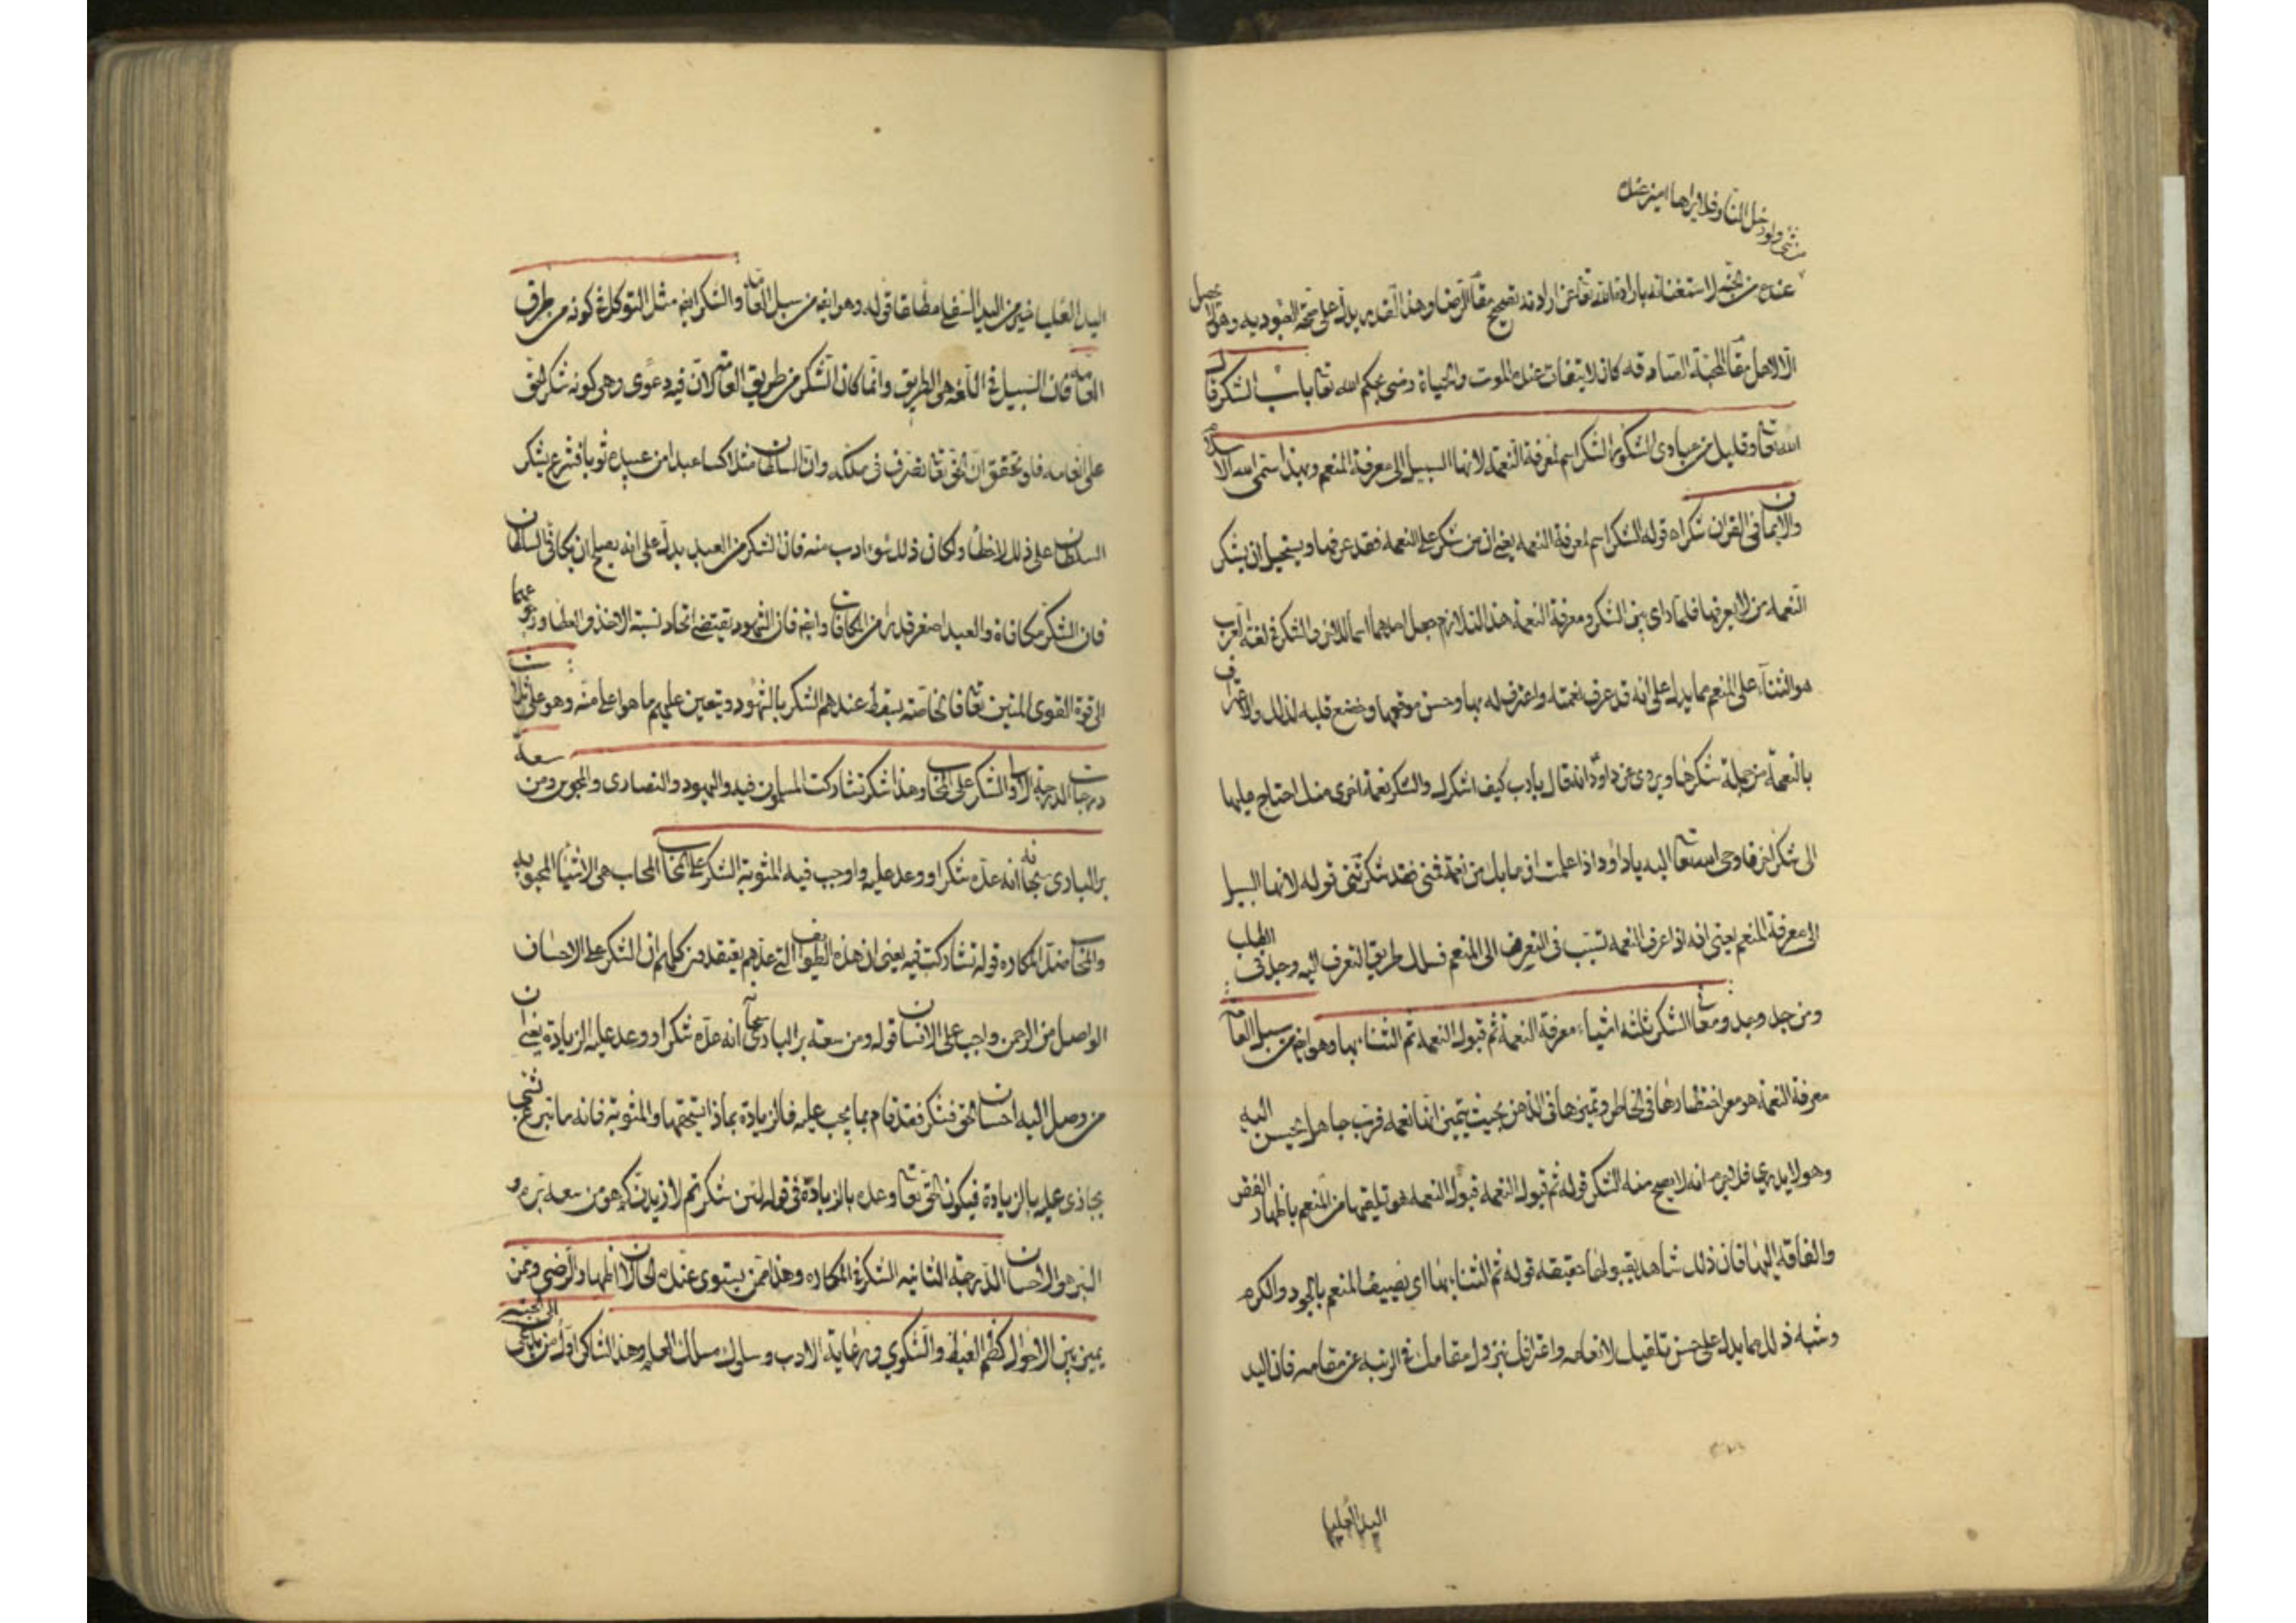 شئ ولو دخل النار فلا يراها اميز عنده
عنده من الجنة لاستغنائه بارادة الله تعا عن ارادته تصحيح مقا الرضا وهذا القدر يدل على صحة العبوديه وهو لا يحصل
الا لاهل مقا المحبة الصادقه كان لا يتفات عنده الموت والحياة رضى بحكم الله تعا باب الشكر قال
الله تعا وقليل من عبادى الشكور الشكر اسم لمعرفة النعمة لانها السبيل الى معرفة المنعم وبهذا سمى الله الاسلام
والايمان فى القران شكرا قوله الشكر اسم لمعرفة النعمه يعنى ان من شكر على النعمه فقد عرفها ويستحيل ان يشكر
النعمه من لا يعرفها فلما راى بين الشكر ومعرفة النعمة هذا التلازم جعل احدهما اسما للاخر والشكر فى لغة العرب
هو الثناء على المنعم بما يدل على انه قد عرف نعمته واعترف له بها وحسن موقعها وخضع قلبه لذلك والاعتراف
بالنعمة من جملة شكرها ويروى عن داود انه قال يا رب كيف اشكرك والشكر نعمة اخرى منك احتاج عليها
الى شكر اخر فاوحى الله تعا اليه يا داود اذا علمت ان ما بك من نعمة فمنى فقد شكرتنى قوله لانها السبيل
الى معرفة المنعم يعنى انه اذا عرف النعمه تسبب فى التعرف الى المنعم فسلك طريق التعرف اليه وجد فى الطلب
ومن جد وجد ومعانى الشكر ثلثة اشياء معرفة النعمة ثم قبول النعمه ثم الثناء بها وهو ايضا من سبيل العامة
معرفة النعمه هو معنى احتضارها فى الخاطر وتميزها فى الذهن بحيث يتميز انها نعمه فرب جاهل يحسن اليه
وهو لا يدرى فلا جرم انه لا يصح منه الشكر قوله ثم قبول النعمه قبول النعمه هو تلقيها من المنعم باظهار الفقر
والفاقة اليها فان ذلك شاهد بقبولها حقيقه قوله ثم الثناء بها اى يصيف المنعم بالجود والكرم
وشبه ذلك مما يدل على حسن تلقيك لانعامه واعترافك بنزول مقامك فى الرتبه عن مقامه فان اليد
اليد العليا
اليد العليا خير من اليد السفلى مطلقا قوله وهو ايضا من سبل العامة والشكر ايضا مثل التوكل فى كونه من طرق
العامة فان السبيل فى اللغه هى الطريق وانما كان الشكر من طريق العامه لان فيه دعوى وهى كونه شكر الحق
على انعامه فلو تحقق ان الحق تعا تصرف فى ملكه وان السلطان مثلا كسا عبدا من عبيده ثوبا فشرع يشكر
السلطان على ذلك لاخطأ ولكان ذلك سوء ادب منه فان الشكر من العبد يدل على انه يصلح ان يكافى السلطان
فان الشكر مكافاة والعبد اصغر قدرا من المكافات وايضا فان الشهود يقتضى اتحاد نسبة الاخذ والعطا ورجوعهما
الى قوة القوى المتين تعا فالخاصة يسقط عندهم الشكر بالشهود ويتعين عليهم ما هو اعلى منه وهو على ثلاث
درجات الدرجة الاولى الشكر على المحاب وهذا شكر تشاركت المسلمون فيه واليهود والنصارى والمجوس ومن سعة
بر البارى سبحانه انه عده شكرا ووعد عليه واوجب فيه المثوبة الشكر على المحاب المحاب هى الاشياء المحبوبة
والمحاب ضد المكاره قوله تشاركت فيه يعنى ان هذه الطوائف التى عدهم يعتقدون كلهم ان الشكر على الاحسان
الواصل من الرحمن واجب على الانسان قوله ومن سعة بر البارى سبحانه انه عده شكرا ووعد عليه الزيادة يعنى ان
من وصل اليه احسان الحق فشكر فقد قام بما يجب عليه فالزيادة بماذا يستحقها والمثوبة فانه ما تبرع بشئ
يجازى عليه بالزيادة فيكون الحق تعا وعده بالزيادة فى قوله لئن شكرتم لازيدنكم هو من سعة بره و
البر هو الاحسان الدرجة الثانيه الشكر فى المكاره وهذا ممن يستوى عنده الحالان اظهار الرضى وممن
يميز بين الاحوال كظم الغيظ والشكوى ورعاية الادب وسلوك مسلك العلم وهذا الشاكر اول من يدعى الى الجنة